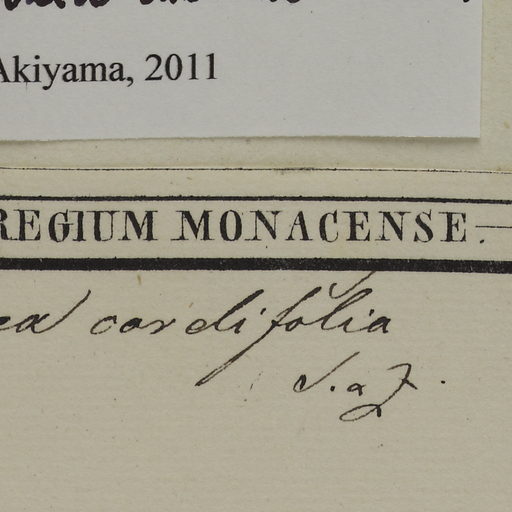 Akiyama, 2011
REGIUM MONACENSE.
ea cordifolia
S. a Z.